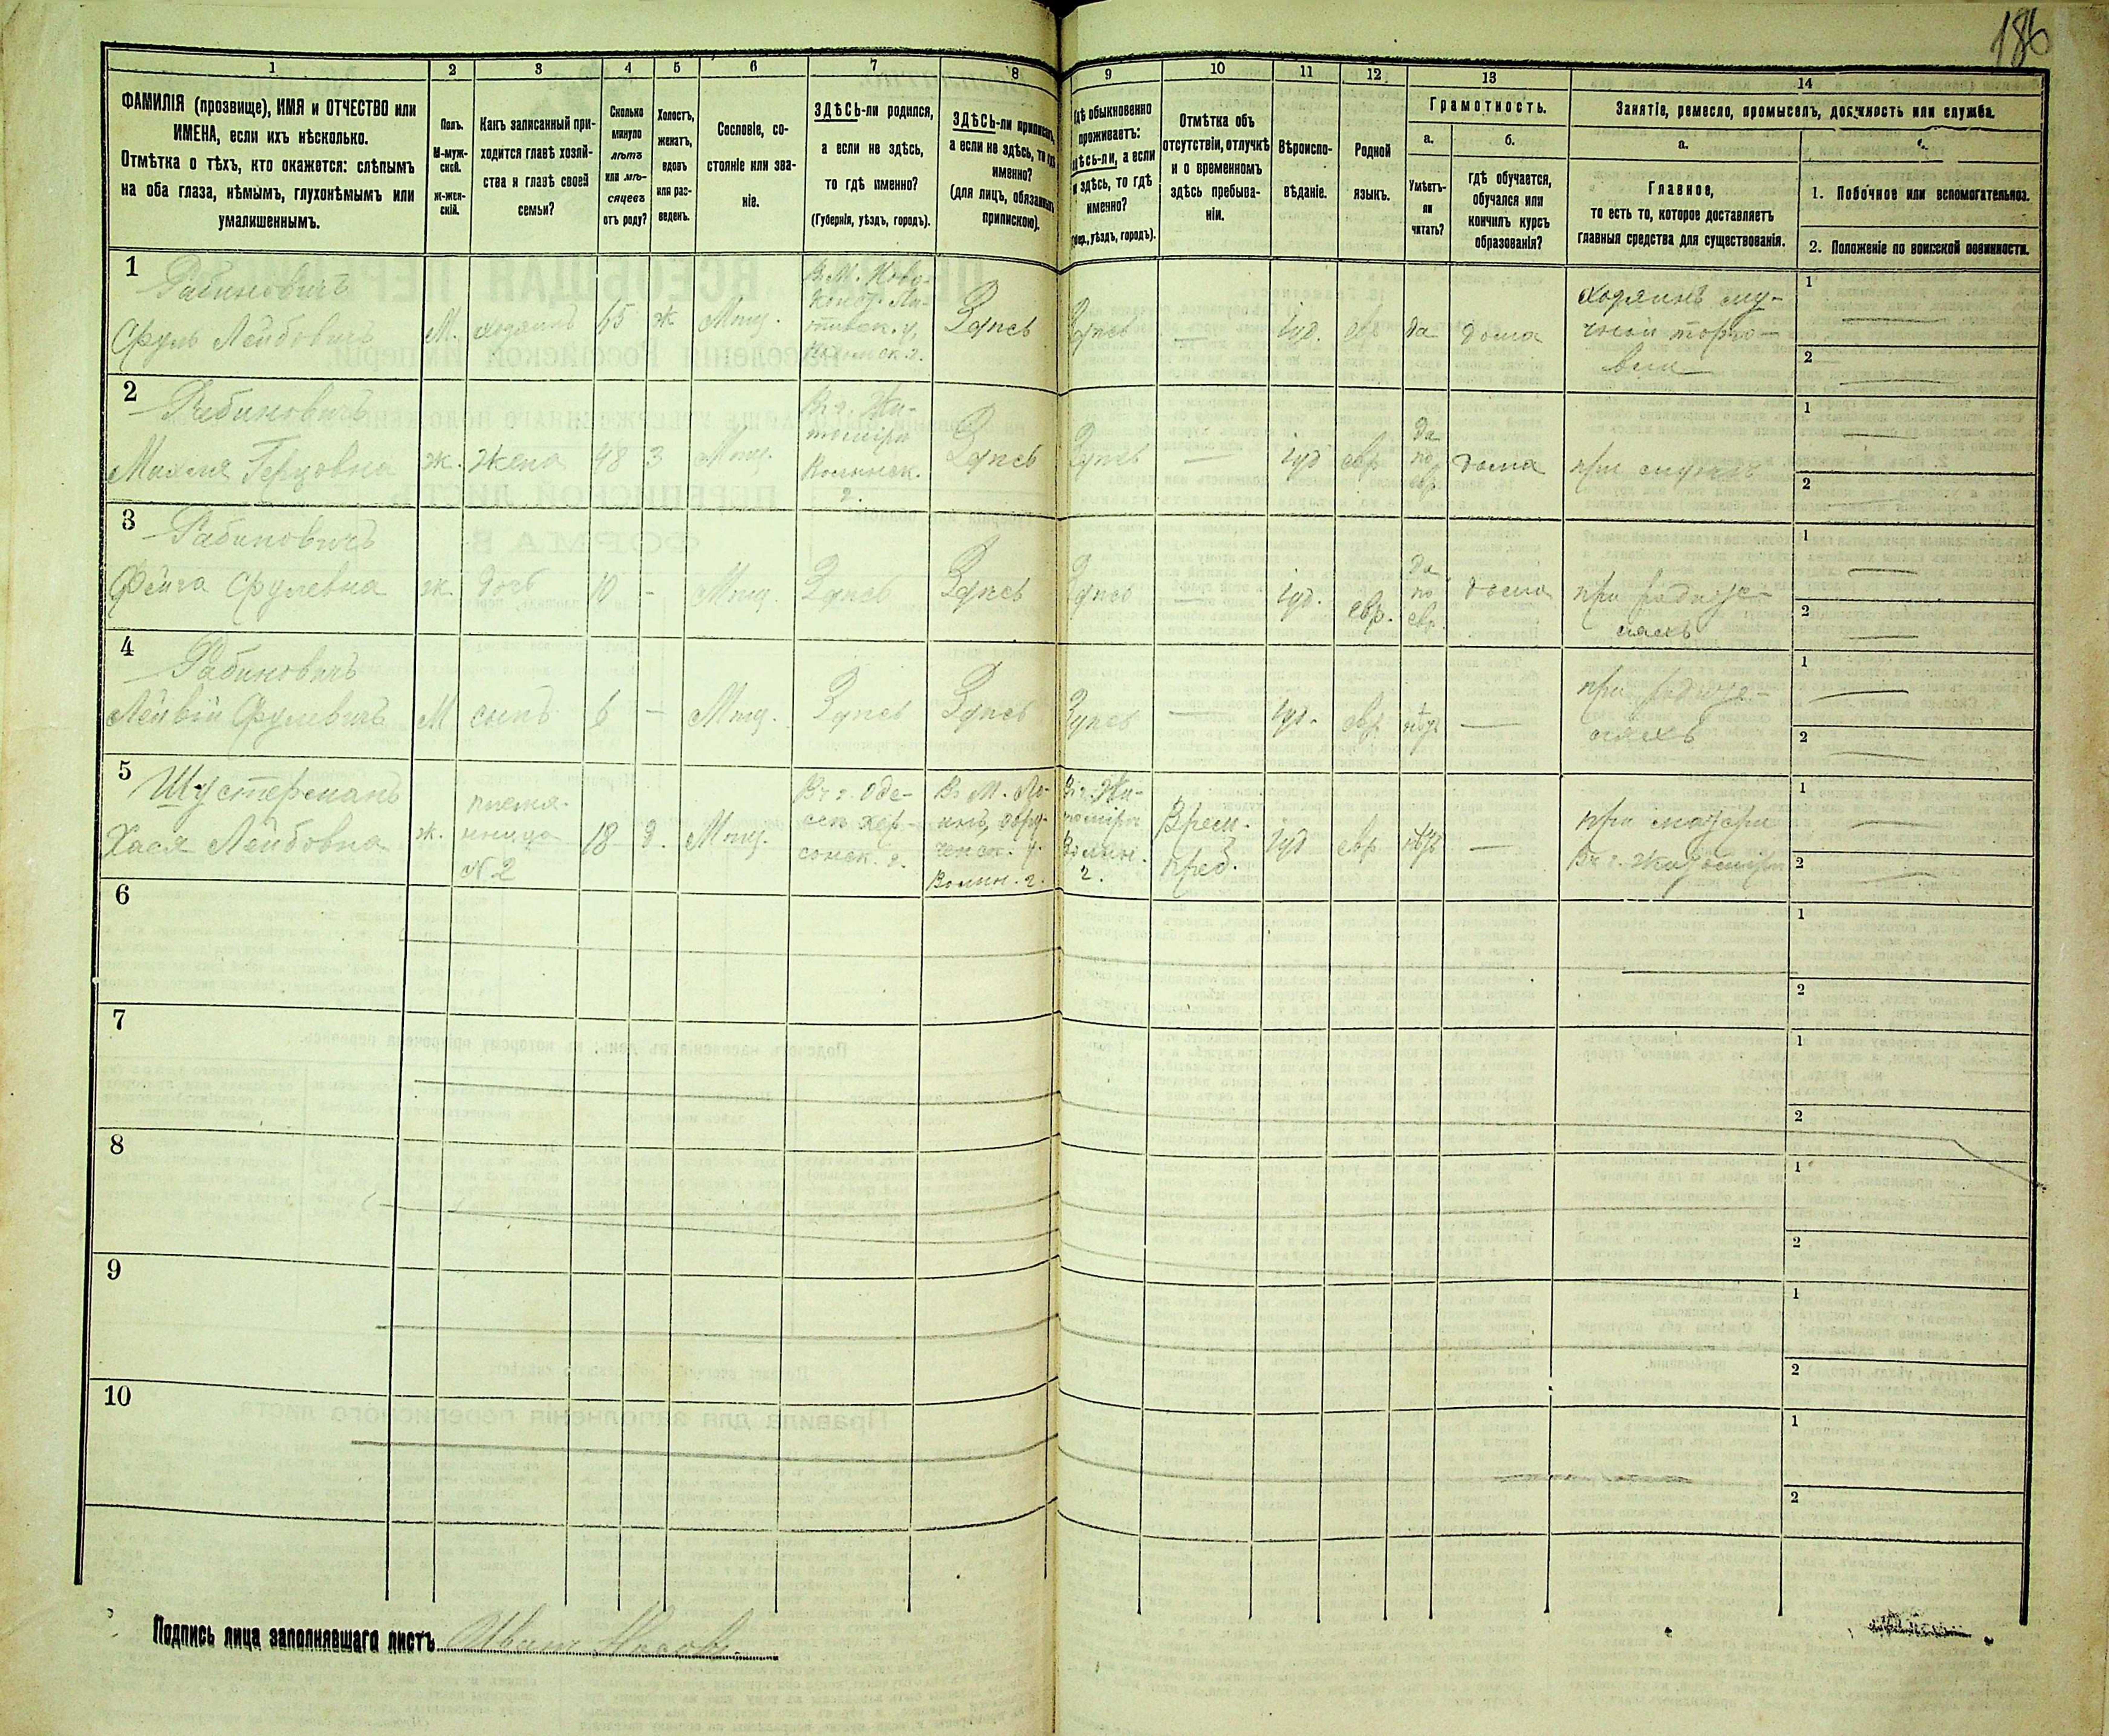 186
1
2
3
4
5
6
7
8
9
10
11
12
13
14
ФАМИЛІЯ (прозвище), ИМЯ и ОТЧЕСТВО или
ИМЕНА, если ихъ нѣсколько.
Отмѣтка о тѣхъ, кто окажется: слѣпымъ
на оба глаза, нѣмымъ, глухонѣмымъ или
умалишеннымъ.
Полъ.
М-муж-
ской.
ж-жен-
скій.
Какъ записанный при-
ходится главѣ хозяй-
ства и главѣ своей
семьи?
Сколько
минуло
лѣтъ
или мѣ-
сяцевъ
отъ роду?
Холостъ,
женатъ,
вдовъ
или раз-
веденъ.
Сословіе, со-
стояніе или зва-
ніе.
ЗДѢСЬ-ли родился,
а если не здѣсь,
то гдѣ именно?
(Губернія, уѣздъ, городъ).
ЗДѢСЬ-ли приписанъ,
а если не здѣсь, то гдѣ
именно?
(для лицъ, обязанныхъ
припискою).
Гдѣ обыкновенно
проживаетъ:
здѣсь-ли, а если
не здѣсь, то гдѣ
именно?
(Губер., уѣздъ, городъ).
Отмѣтка объ
отсутствіи, отлучкѣ
и о временномъ
здѣсь пребыва-
ніи.
Вѣроиспо-
вѣданіе.
Родной
языкъ.
Грамотность.
а.
б.
Умѣетъ-
ли
читать?
гдѣ обучается,
обучался или
кончилъ курсъ
образованія?
Занятіе, ремесло, промыселъ, должность или служба.
а.
Главное,
то есть то, которое доставляетъ
главныя средства для существованія.
1. Побочное или вспомогательное.
2. Положеніе по воинской повинности.
1
Рабиновичъ
Сруль Лейбовичъ
М.
хозяинъ
ж
Мѣщ.
Здѣсь
Здѣсь
—
іуд.
евр
да
дома
хозяинъ му-
чной торго-
вли
1 —
2 —
2
Рабиновичъ
Махля Герцовна
ж.
жена
48
з
Мѣщ.
Въ г. Жи-
томірѣ
Волынск.
г.
Здѣсь
Здѣсь
—
іуд
евр
да
по
евр
дома
при мужѣ
1 —
2 —
3
Рабиновичъ
Фейга Срулевна
ж.
дочь
10
-
Мѣщ.
Здѣсь
Здѣсь
Здѣсь
—
іуд.
евр.
да
по
евр.
дома
при родите-
ляхъ
1 —
2 —
4
Рабиновичъ
Срулевичъ
М
сынъ
6
—
Мѣщ.
Здѣсь
Здѣсь
Здѣсь
—
іуд.
евр
нѣтъ
—
при родите-
ляхъ
1 —
2 —
5
Шустерманъ
Хася Лейбовна
ж.
племя-
нница
№ 2
18
д.
Мѣщ.
Въ г. Оде-
ссѣ Хер-
сонск. г.
Волын. г.
Въ г. Жи-
томірѣ
Волын.
г.
Врем.
преб.
іуд
евр
нѣтъ
—
при матери
Въ г. Житомірѣ
1 —
2 —
6
1
2
7
1
2
8
1
2
9
1
2
10
1
2
Подпись лица заполнявшаго листъ